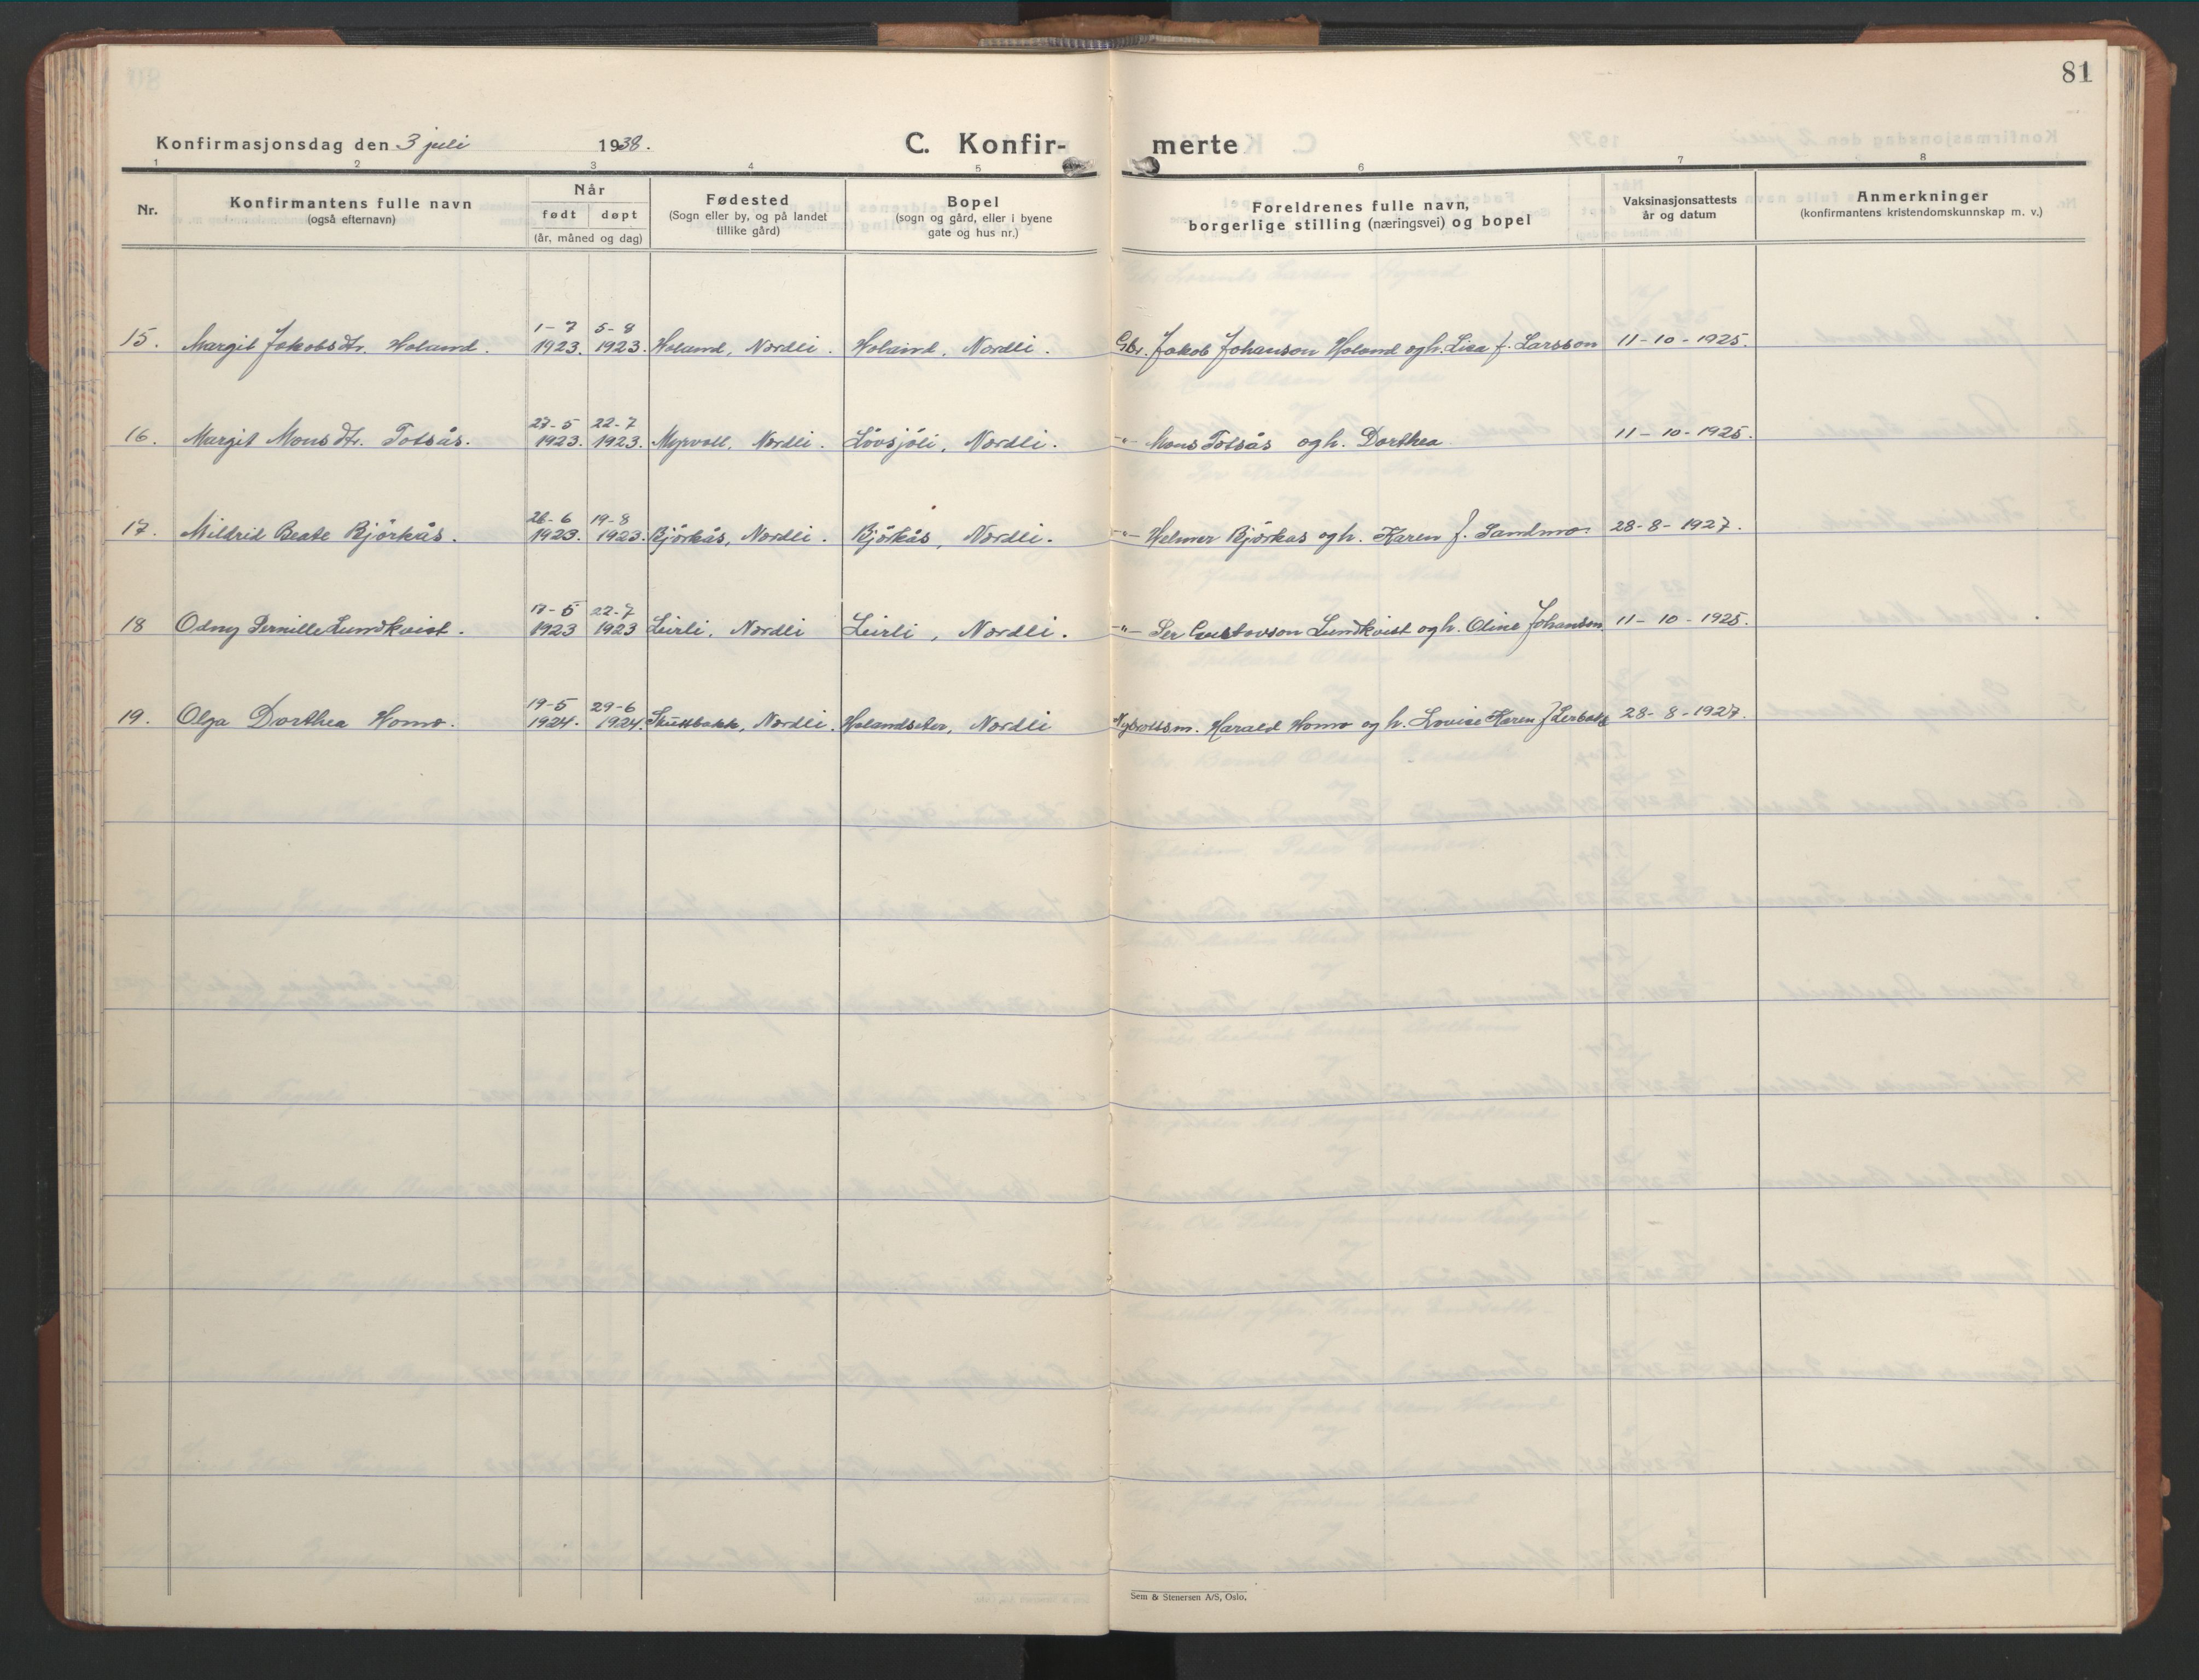 81
Konfirmasjonsdag den 3 juli 1938.
C. Konfir-
merte
1 2 3 4 5 6 7 8
Nr.
Konfirmantens fulle navn
(også efternavn)
Når
født døpt
(år, måned og dag)
Fødested
(Sogn eller by, og på landet
tillike gård)
Bopel
(sogn og gård, eller i byene
gate og hus nr.)
Foreldrenes fulle navn,
borgerlige stilling (næringsvei) og bopel
Vaksinasjonsattests
år og datum
Anmerkninger
(konfirmantens kristendomskunnskap m. v.)
1-7 5-8
15. Margit Jakobsdtr. Holand. 1923. 1923. Holand, Nordli. Holand, Nordli. Gbr. Jakob Johanson Holand og h. Lisa f. Larsson 11-10-1925.
27-5 22-7
16. Margit Monsdtr. Totsås. 1923. 1923. Myrvoll, Nordli. Lövsjöli, Nordli. -"- Mons Totsås og h. Dorthea 11-10-1925.
26-6 19-8
17. Mildrid Beate Bjørkås. 1923. 1923. Bjørkås, Nordli. Bjørkås, Nordli. -"- Helmer Bjørkas og h. Karen f. Sandmo. 28-8-1927.
17-5 22-7
18 Odny Pernille Lundkvist. 1923 1923 Leirli, Nordli Leirli, Nordli. -"- Per Gustavson Lundkvist og h. Oline Johanson 11-10-1925.
19-5 29-6
19. Olga Dorthea Homo. 1924. 1924. Skuttbakk, Nordli. Holandseter, Nordli Nybrottsm. Harald Homo og h. Lovise Karen f. Lerbakk 28-8-1927.
Sem & Stenersen A/S, Oslo.